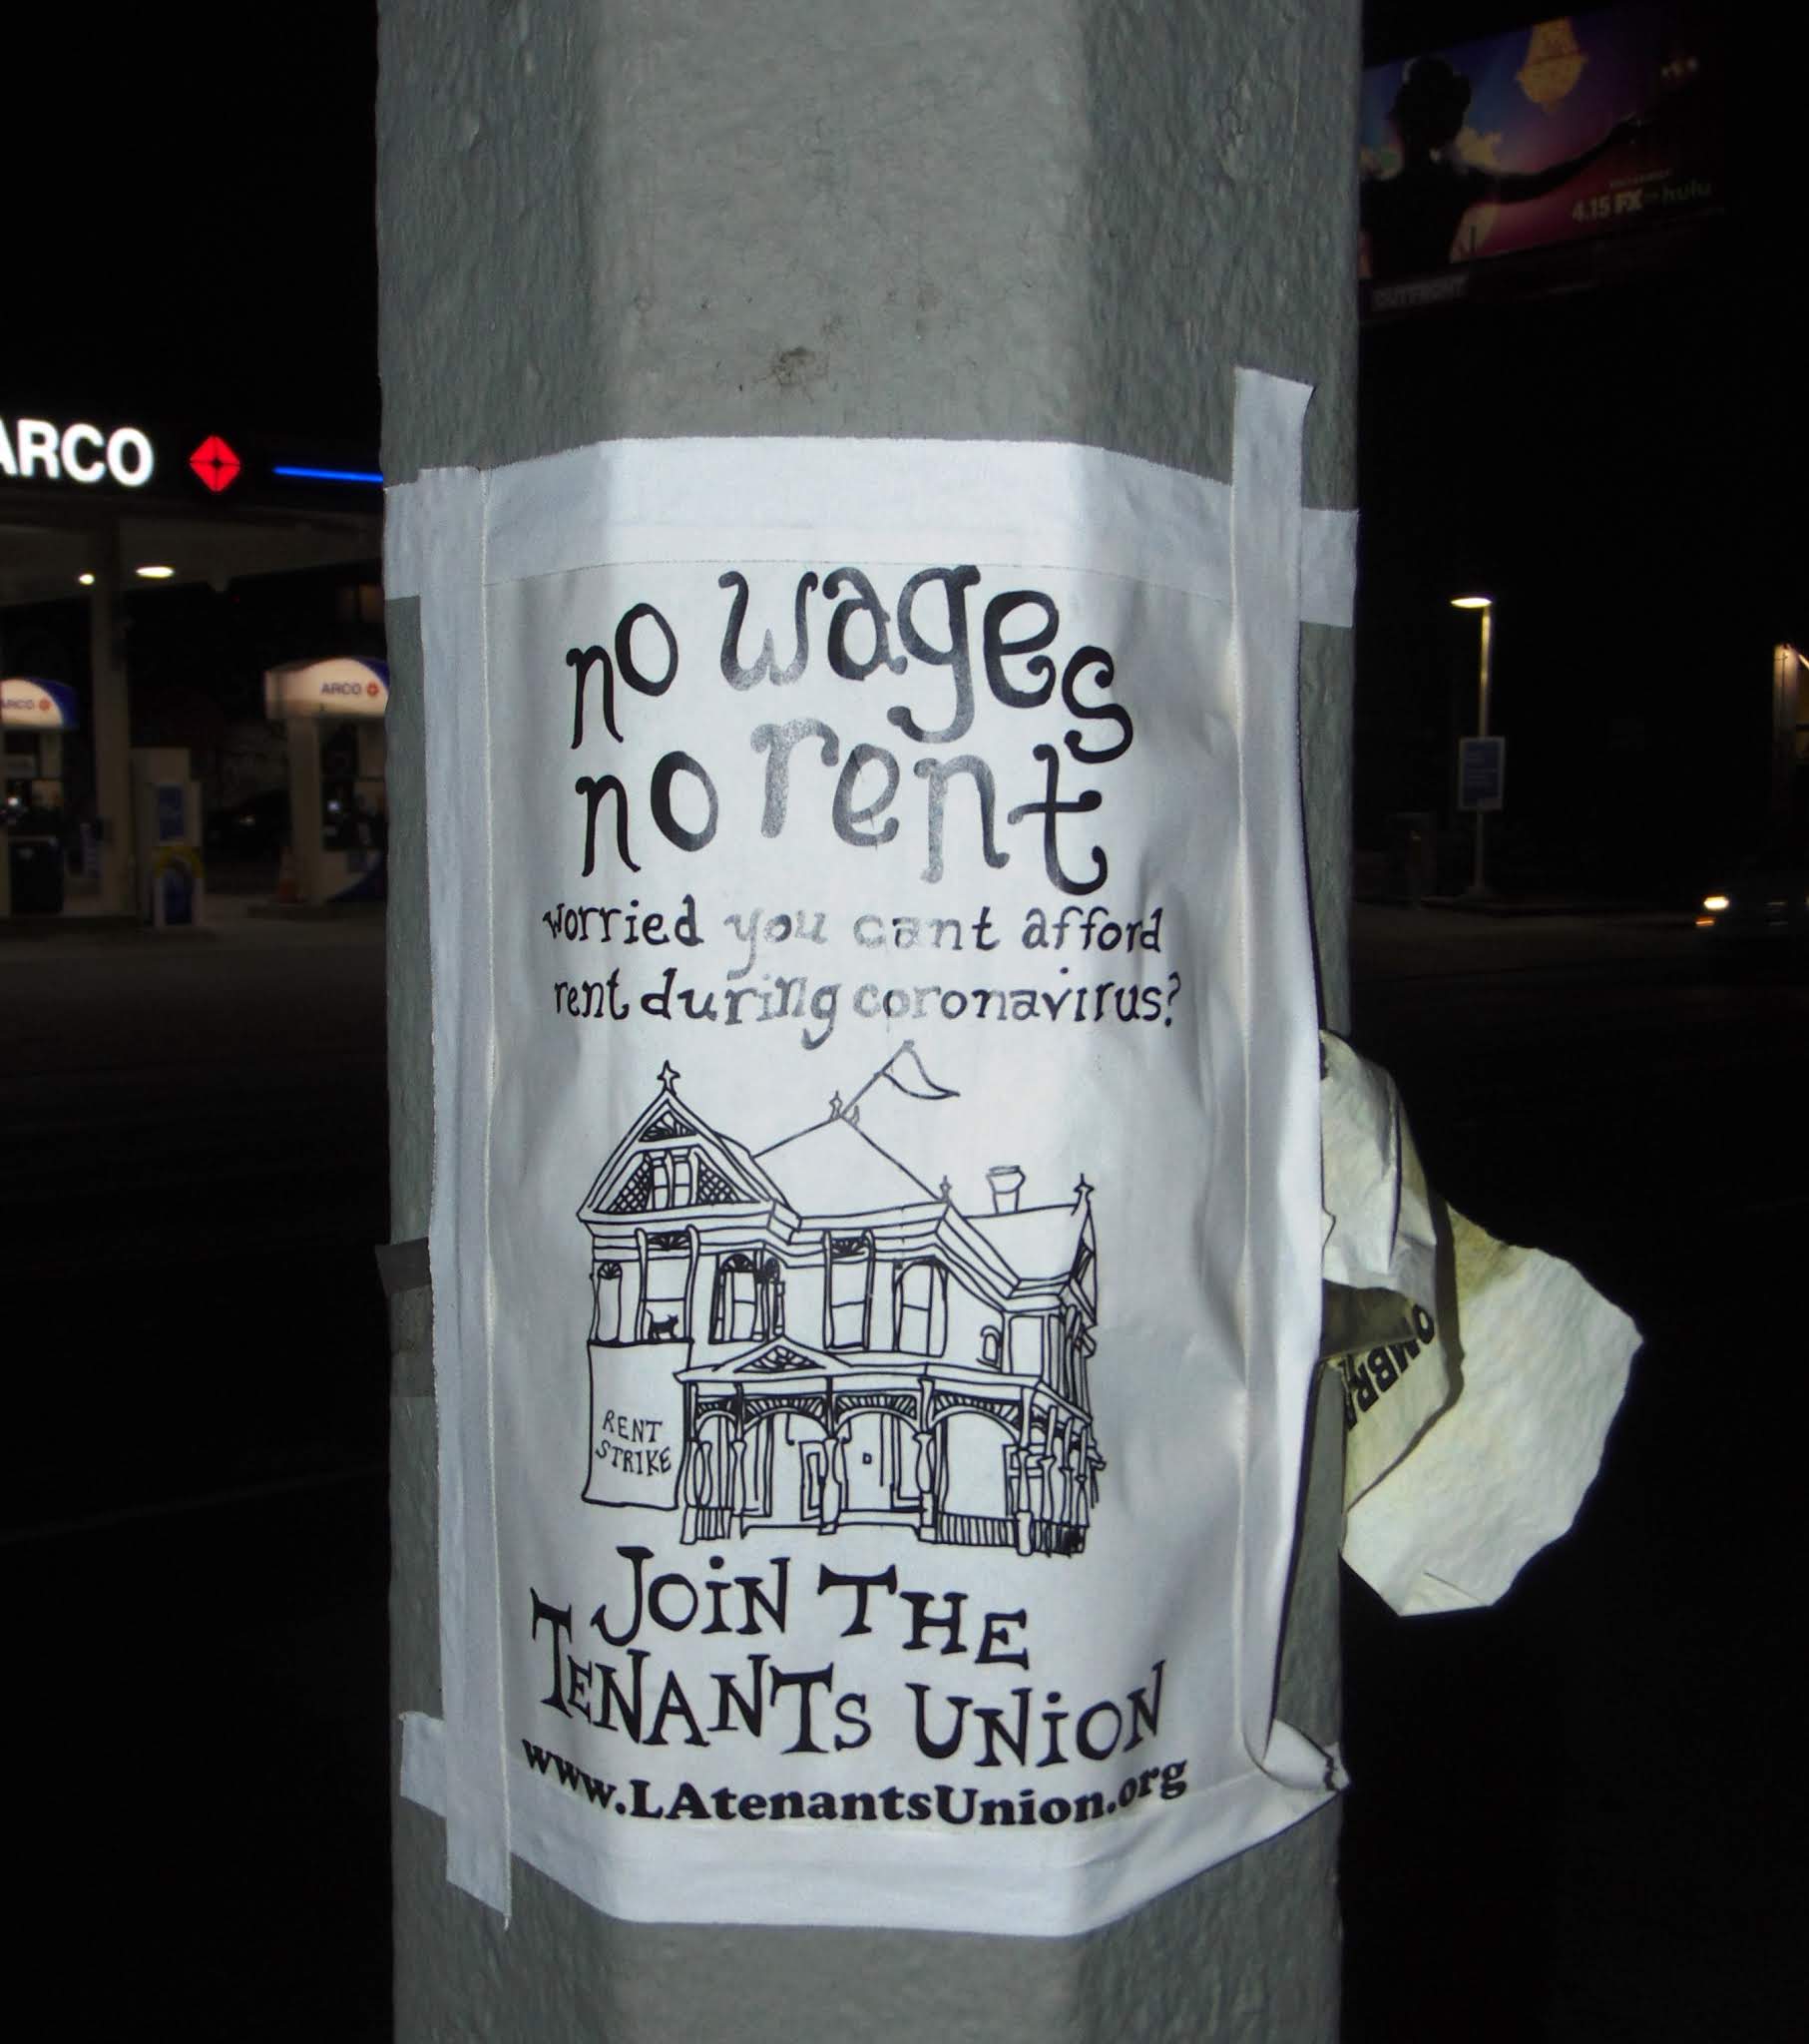 no wages
no rent
worried you cant afford
rent during coronavirus?
RENT
STRIKE
JOiN THE
TENANTS UNiON
www.LAtenantsUnion.org
ARCO
ARCO
ARCO
4.15 FX hulu
OUTFRONT
OMBR